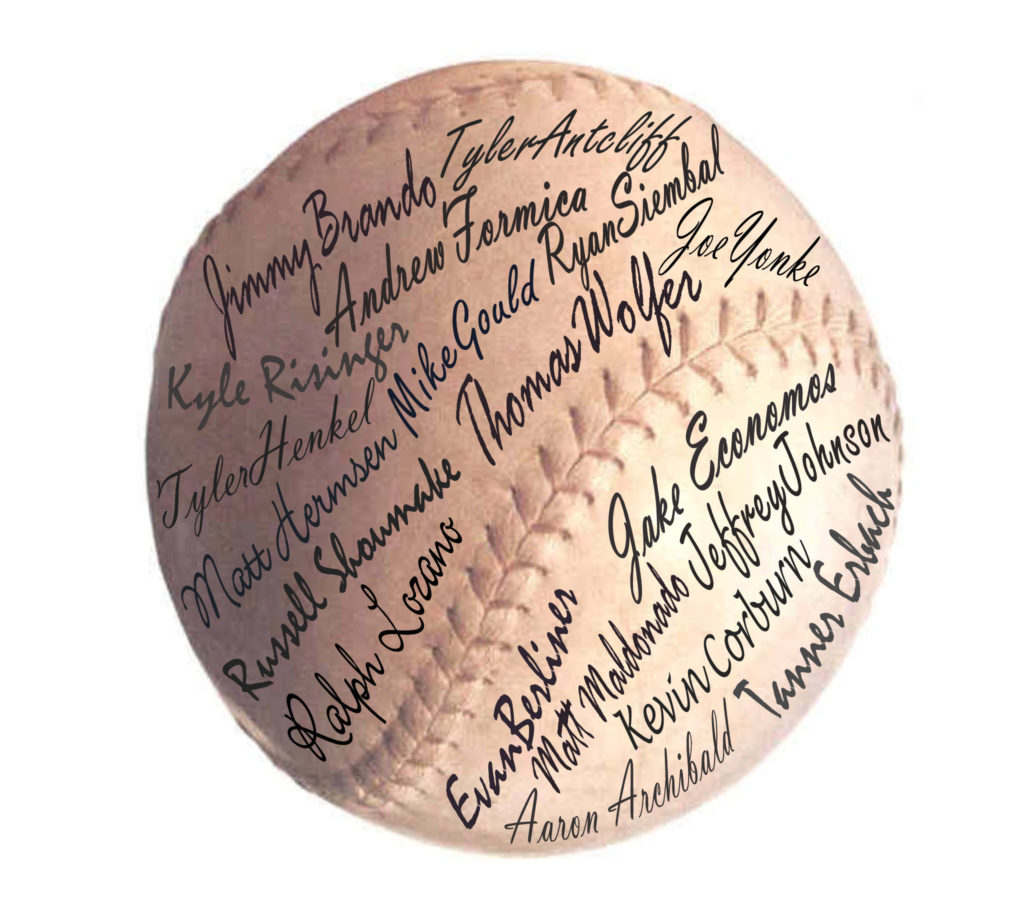 TylerAntcliff
JimmyBrando
Andrew Formica
RyanSiembal
JoeYonke
Kyle Risinger
MikeGould
ThomasWolfer
TylerHenkel
Matt Hermsen
Russell Shoumake
Ralph Lozano
Jake Economos
JeffreyJohnson
EvanBerliner
Matt Maldonado
Kevin Corburn
Tanner Erbach
Aaron Archibald